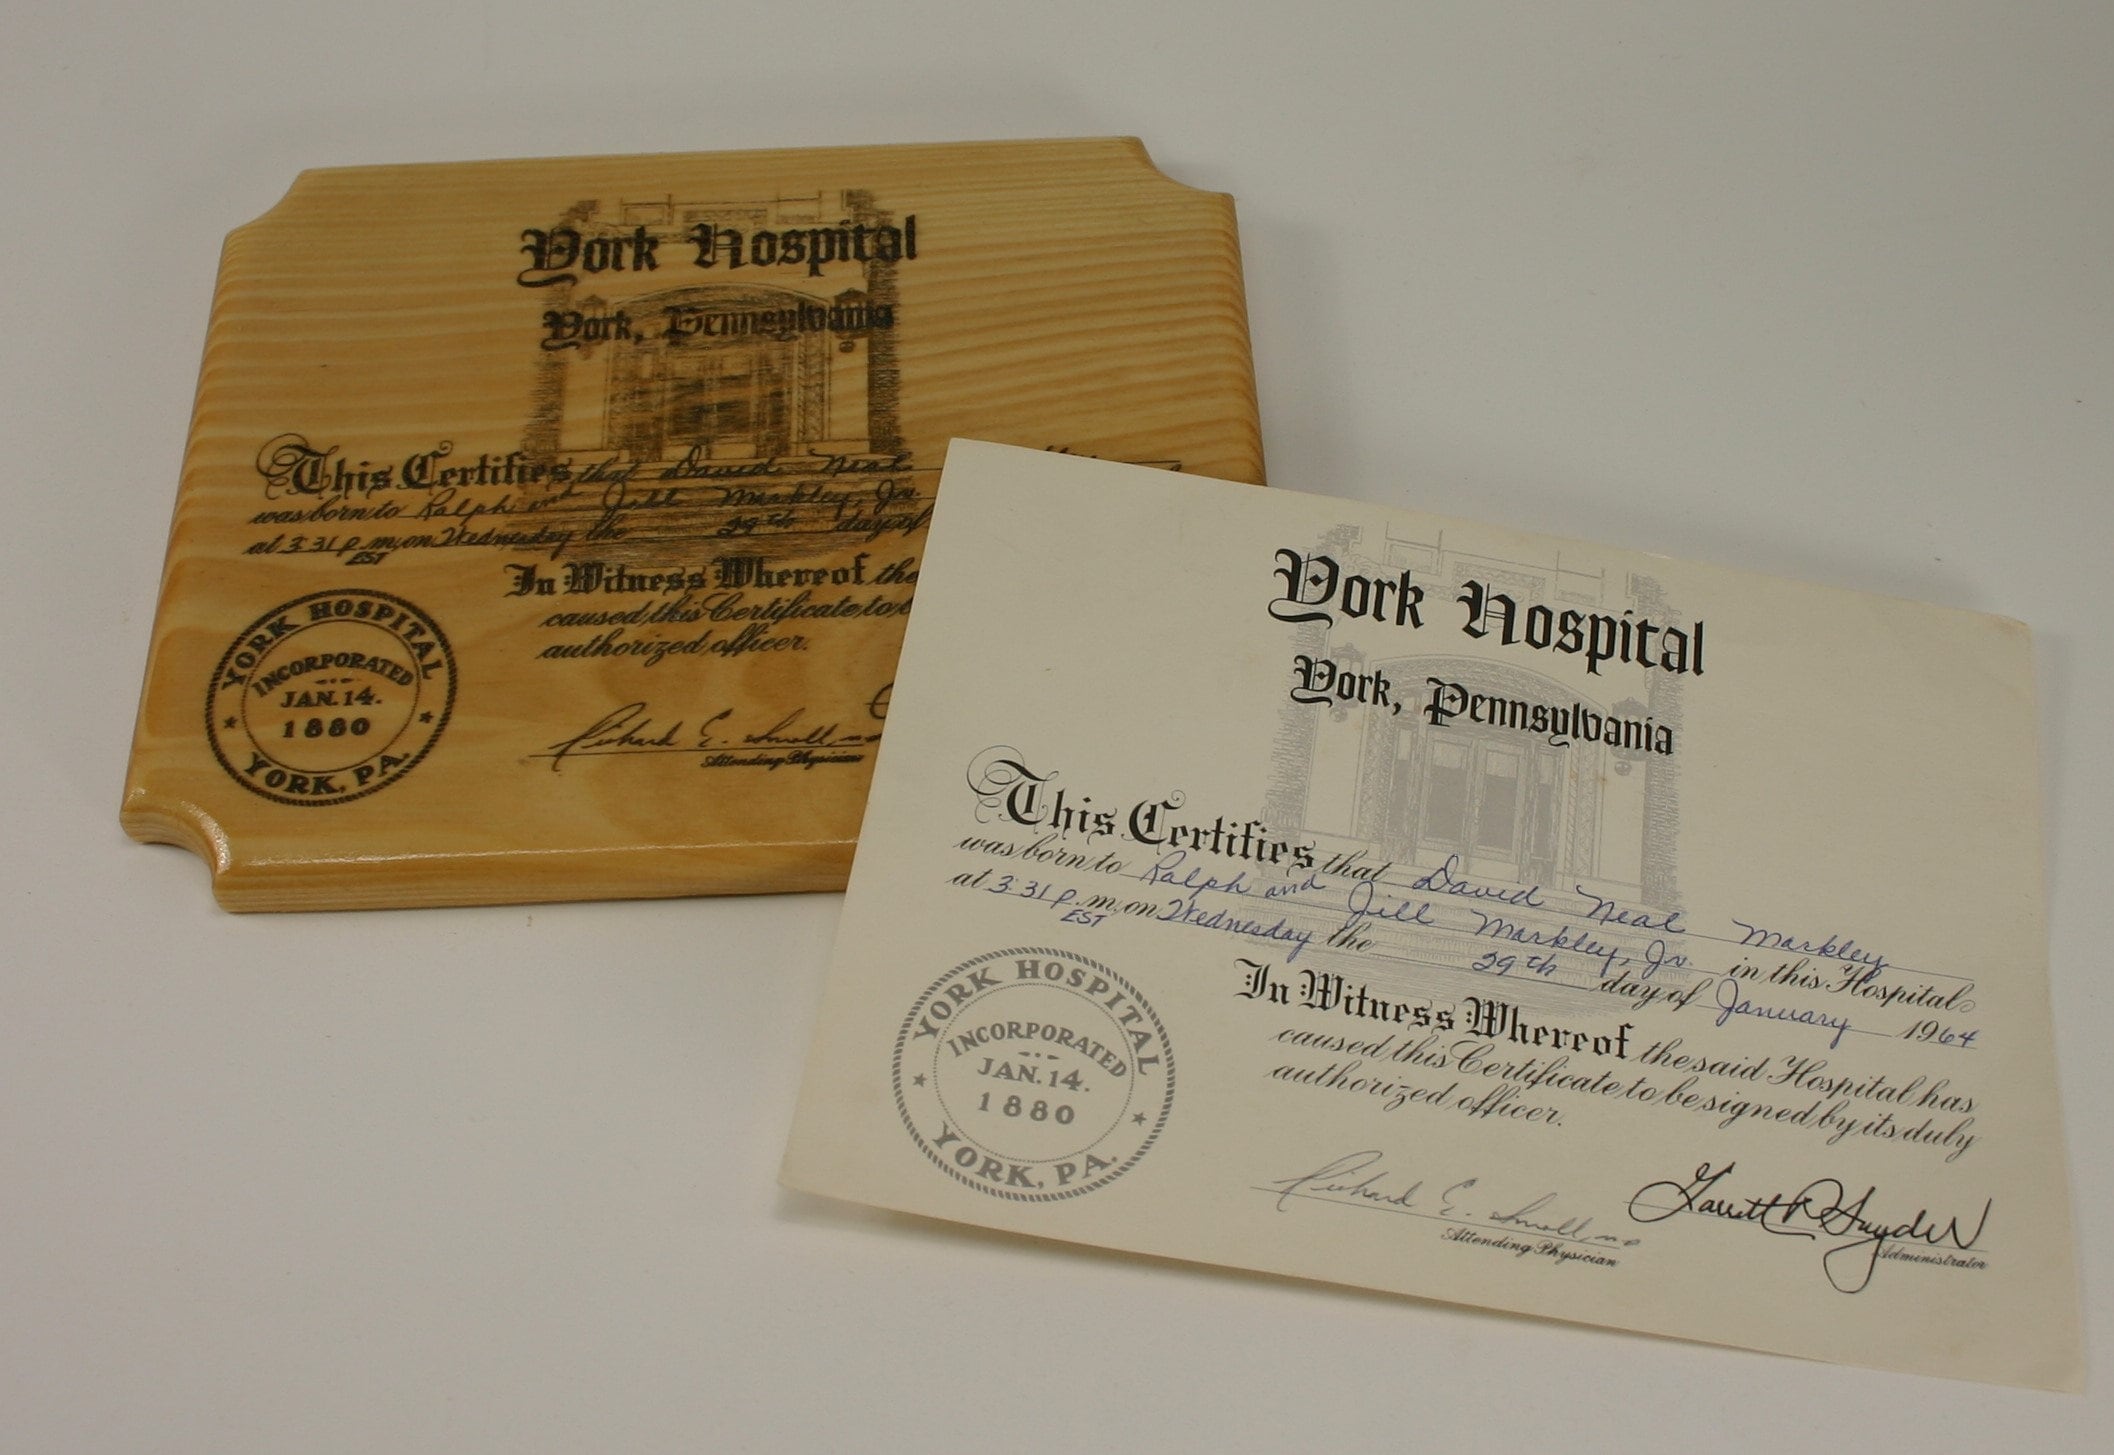 York Hospital
York, Pennsylvania
This Certifies that David Neal
was born to Ralph and Jill Markley, Jr.
at 3:31 p.m. on Wednesday the 29th day of
EST
In Witness Whereof the
caused this Certificate to
authorized officer.
YORK HOSPITAL
INCORPORATED
JAN. 14.
1880
YORK, PA.
Richard E. Small, MD
Attending Physician
York Hospital
York, Pennsylvania
This Certifies that David Neal Markley
was born to Ralph and Jill Markley, Jr. in this Hospital
at 3:31 p.m. on Wednesday the 29th day of January 1964
EST
In Witness Whereof the said Hospital has
caused this Certificate to be signed by its duly
authorized officer.
YORK HOSPITAL
INCORPORATED
JAN. 14.
1880
YORK, PA.
Richard E. Small, MD
Attending Physician
Snyder
Administrator